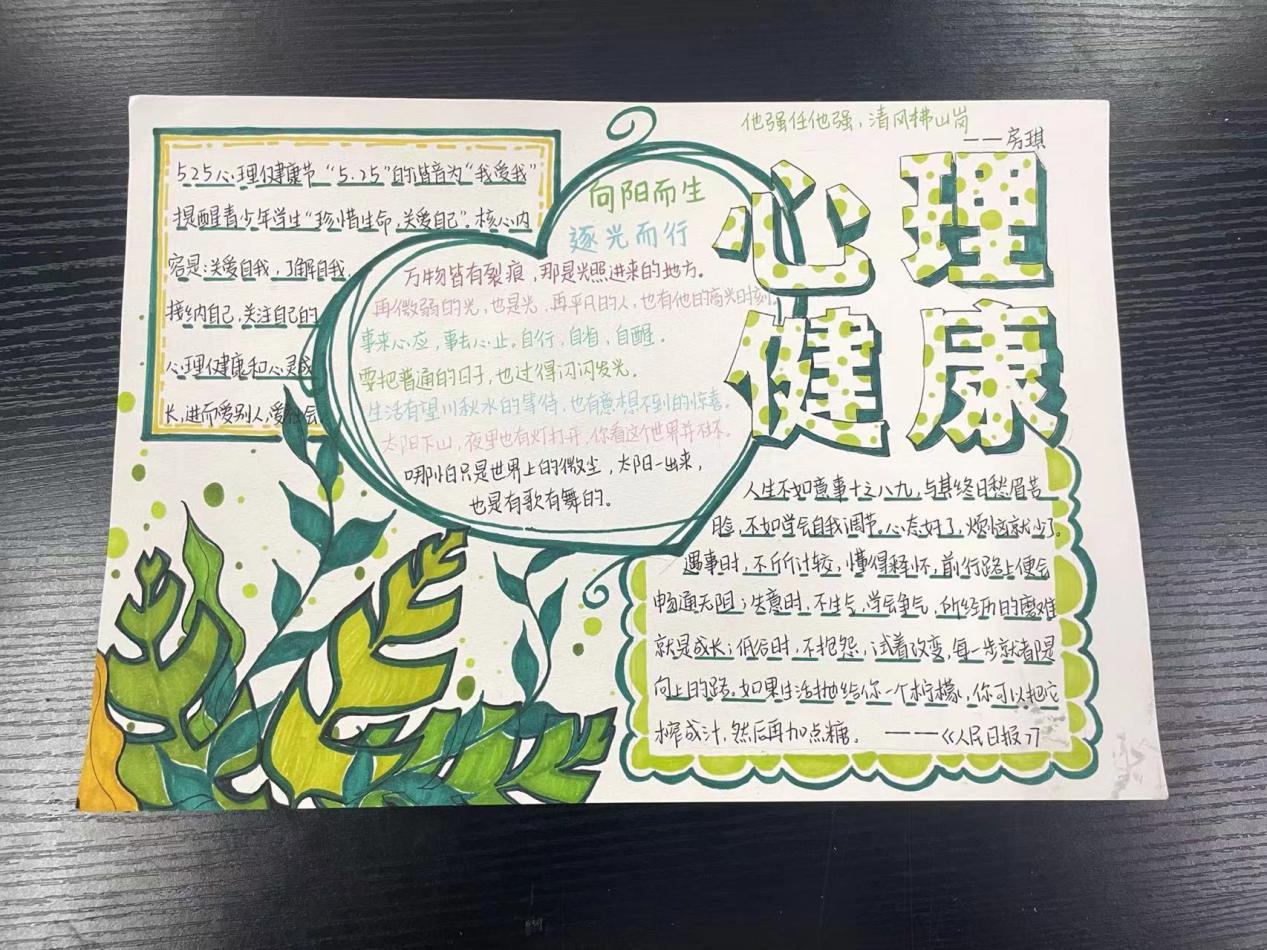 他强任他强，清风拂山岗
——房琪
心理
健康
525心理健康节“5.25”的谐音为“我爱我”
提醒青少年学生“珍惜生命,关爱自己”。核心内
容是:关爱自我，了解自我，
接纳自己，关注自己的
心理健康和心灵成
长,进而爱别人,爱社会
向阳而生
逐光而行
万物皆有裂痕，那是光照进来的地方。
再微弱的光，也是光，再平凡的人，也有他的高光时刻。
事来心应，事去心止。自行，自省，自醒。
要把普通的日子，也过得闪闪发光。
生活有望川秋水的等待，也有意想不到的惊喜。
太阳下山，夜里也有灯打开，你看这个世界并不坏。
哪怕只是世界上的微尘，太阳一出来，
也是有歌有舞的。
人生不如意事十之八九，与其终日愁眉苦
脸，不如学会自我调节。心态好了，烦恼就少了。
遇事时，不斤斤计较，懂得释怀，前行路上便会
畅通无阻；失意时，不生气，学会争气，所经历的磨难
就是成长；低谷时，不抱怨，试着改变，每一步就都是
向上的路。如果生活抛给你一个柠檬，你可以把它
榨成汁，然后再加点糖。 ——《人民日报》